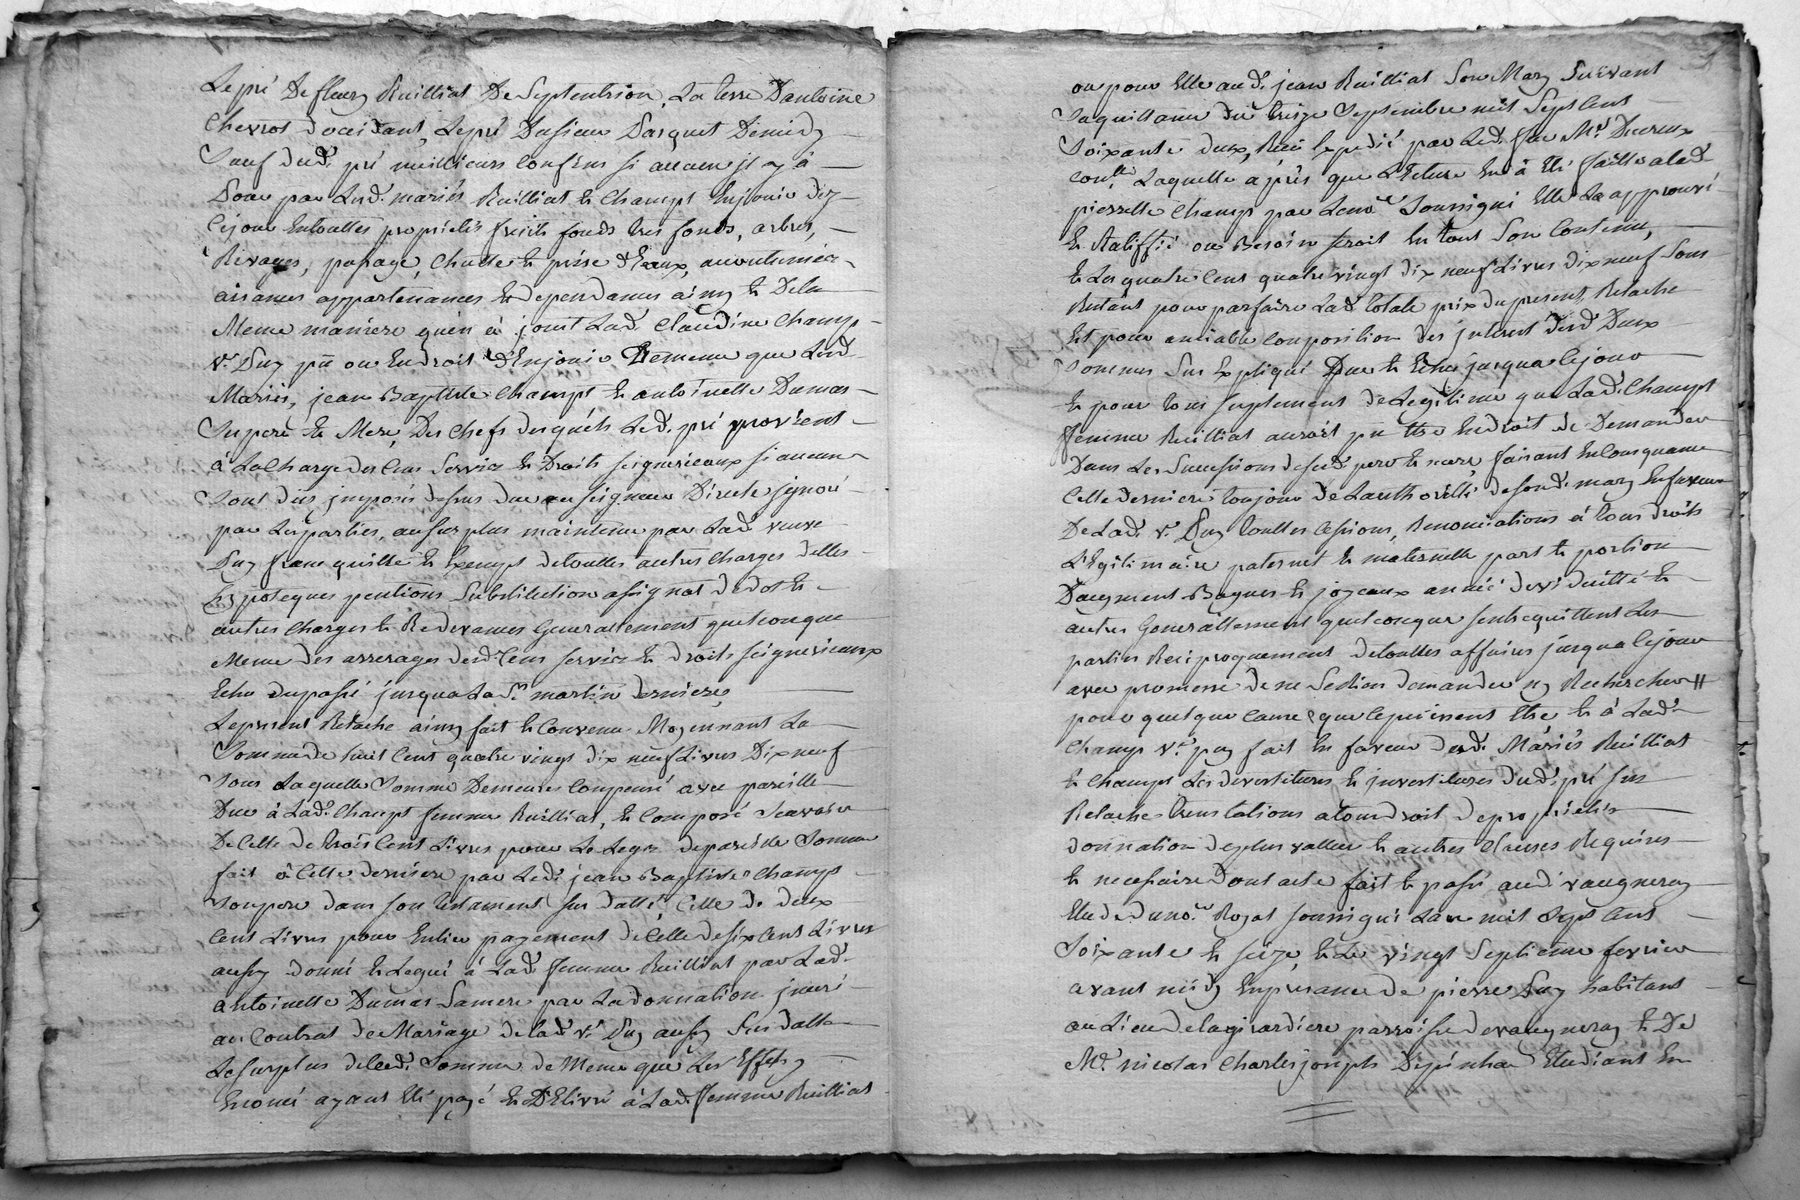 Le pré De fleury Ruilliat De Septentrion, La terre Dantoine
Chevrot doccidant, Le pré Dusieur Pasquet Demidy
Sauf dud. pré meillieurs confins si aucun il y à
Pour par Lesd. mariés Ruilliat et Champt En jouir dez
Cejour En toutes proprietés fruits fonds tres fonds, arbres,
Rivages, passage, Chutte et prise d'Eaux, accoutumées
aisances appartenances et dependances ainsy et Dela
Meme maniere quen à jouit Lad. Claudine Champ
Ve. Puy pu ou En droit d'En jouir De meme que Lesd.
Mariés, jean Baptiste Champt et antoinette Dumas
Ses pere et Mere, Des Chefs desquels Led. pré provient
à La Charge des Cens Servies et Droits seigneuriaux si aucuns
Sont dûs imposés dessus due au seigneur Directe ignoré
par Les parties, au surplus maintenu par Lad. veuve
Puy franc quitte et Exempt de touttes autres Charges dettes
hypoteques pentions Substitution assignat de dot et
autres Charges et Redevances Generallement quelconque
Meme des arrerages desd. Cens servis et droits seigneuriaux
Echu du passé jusqua La St. martin derniere,
Le present Relache ainsy fait et Convenu Moyennant La
Somme de huit Cent quatre vingt dix neuf Livres Dix neuf
Sous Laquelle Somme Demeure Compensé avec pareille
Due à Lad. Champt femme Ruilliat, et Composé Scavoir
De Celle de trois Cent Livres pour Le Legs de pareille Somme
fait à Cette derniere par Led. jean Baptiste Champt
Son pere dans son testament sus datté Celle de deux
Cent Livres pour Entier payement de Celle de six Cent Livres
aussy donné et Legué à Lad. femme Ruilliat par Lad.
antoinette Dumas Samere par La donnation inseré
au Contrat de Mariage de lad. Ve. Puy aussy Sus datté
Le surplus de lad. Somme de Meme que Les Effets y
Enoncé ayant Eté payé et Délivré à Lad. femme Ruilliat
ou pour Elle aud. jean Ruilliat Son Mary Suivant
Sa quittance du treize Septembre mil Sept Cent
Soixante deux, Recû par Led. feu Me. Decreux
Laquelle apres que Lecture En à Eté faitte a lad.
pierrette Champt par Le nore. Soussigné Elle La approuvé
Et Ratiffié ou Besoin seroit En tout Son Contenu,
et Les quatre Cent quatre vingt dix neuf Livres dix neuf Sous
Restant pour parfaire Lad. totale prix du present Relache
Est pour amiable Composition des interest desd. Deux
Sommes Sus Expliqué Due et Echu jusqua Cejour
Et pour tout suplement de Legitime que Lad. Champt
femme Ruilliat auroit pu Etre En droit de Demander
Dans Les Successions desd. pere et mere faisant En Consequance
Cette derniere toujour De Lauthorité de sond. mary En faveur
De Lad. Ve. Puy touttes Cessions, Renonciations à tous droits
Legitimaire paternel et maternelle part et portion
Daugment Bagues et joyeaux année de viduitté et
autres Generallement quelconque sentrequittent Les
parties Reciproquement de touttes affaires jusqua Cejour
avec promesse de ne Serien demander ny Rechercher
pour quelque Cause que Ce puissent Etre et à Lad.
Champ Ve. puy fait En faveur desd. Mariés Ruilliat
et Champt Les devestitures et investitures dud. pré sus
Relaché translations atous droit de proprietés
donnation de plus vallue et autres Clauses Requises
et necessaire Dont acte fait et passé aud. vaugneray
Etude du nore. Royal soussigné Lan mil Sept Cent
Soixante et seize, et Le vingt Septieme fevrier
avant midy En presance de pierre Puy habitant
au Lieu de la girardiere parroisse de vaugneray et De
Me. nicolas Charles joseph Depinhac Etudiant En